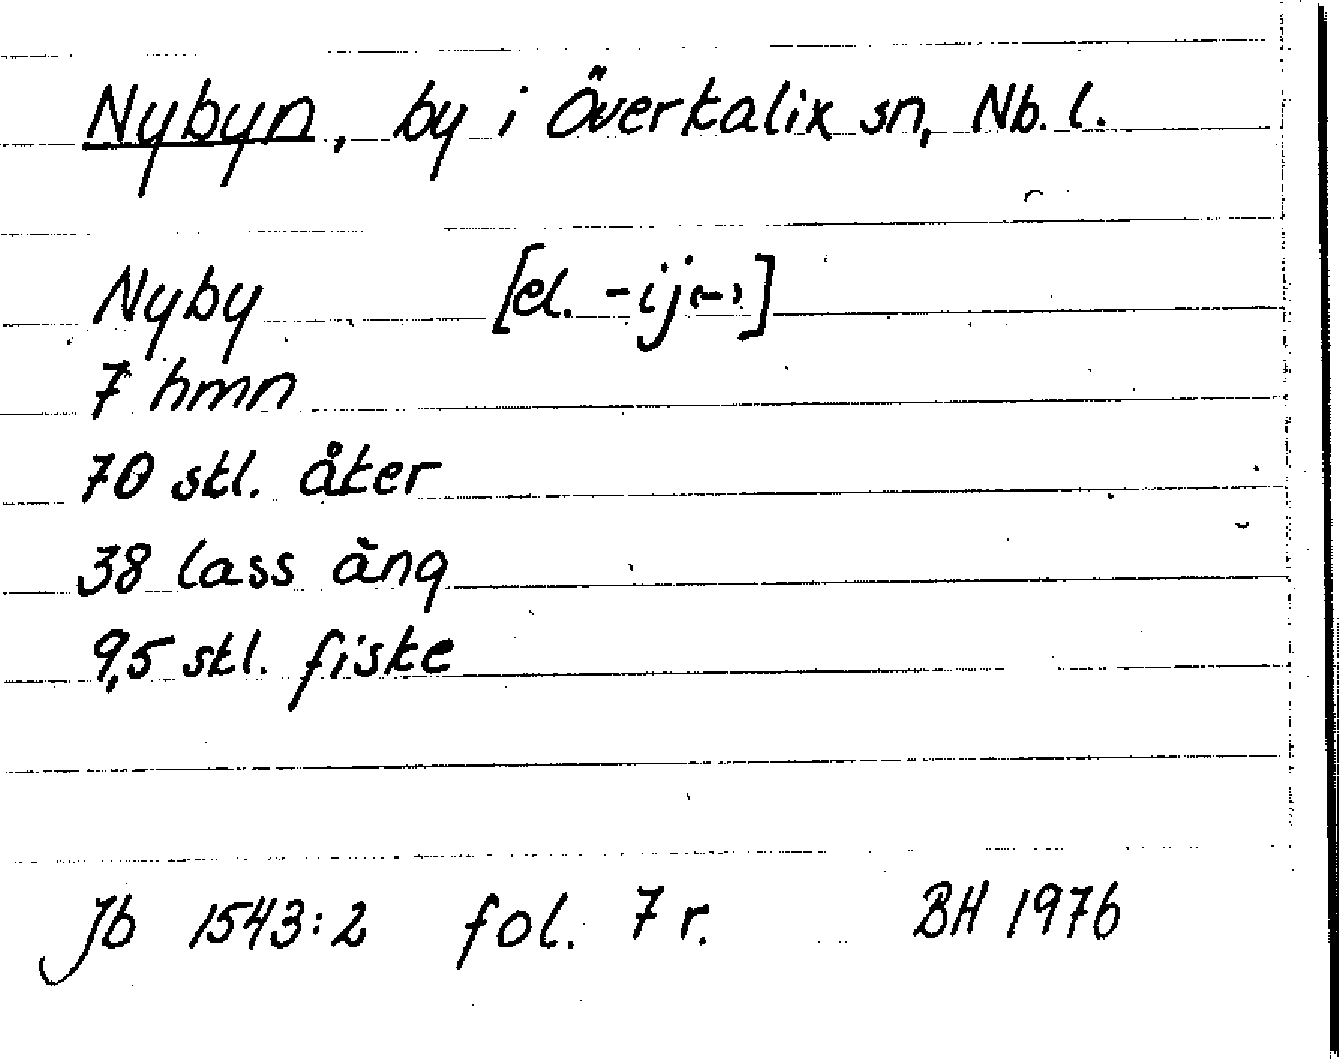 Nybyn, by i Överkalix sn, Nb. l.
Nyby [el. -ij(-)]
7 hmn
70 skl. åker
38 lass äng
9,5 skl. fiske
Jb 1543:2 fol. 7 r. BH 1976